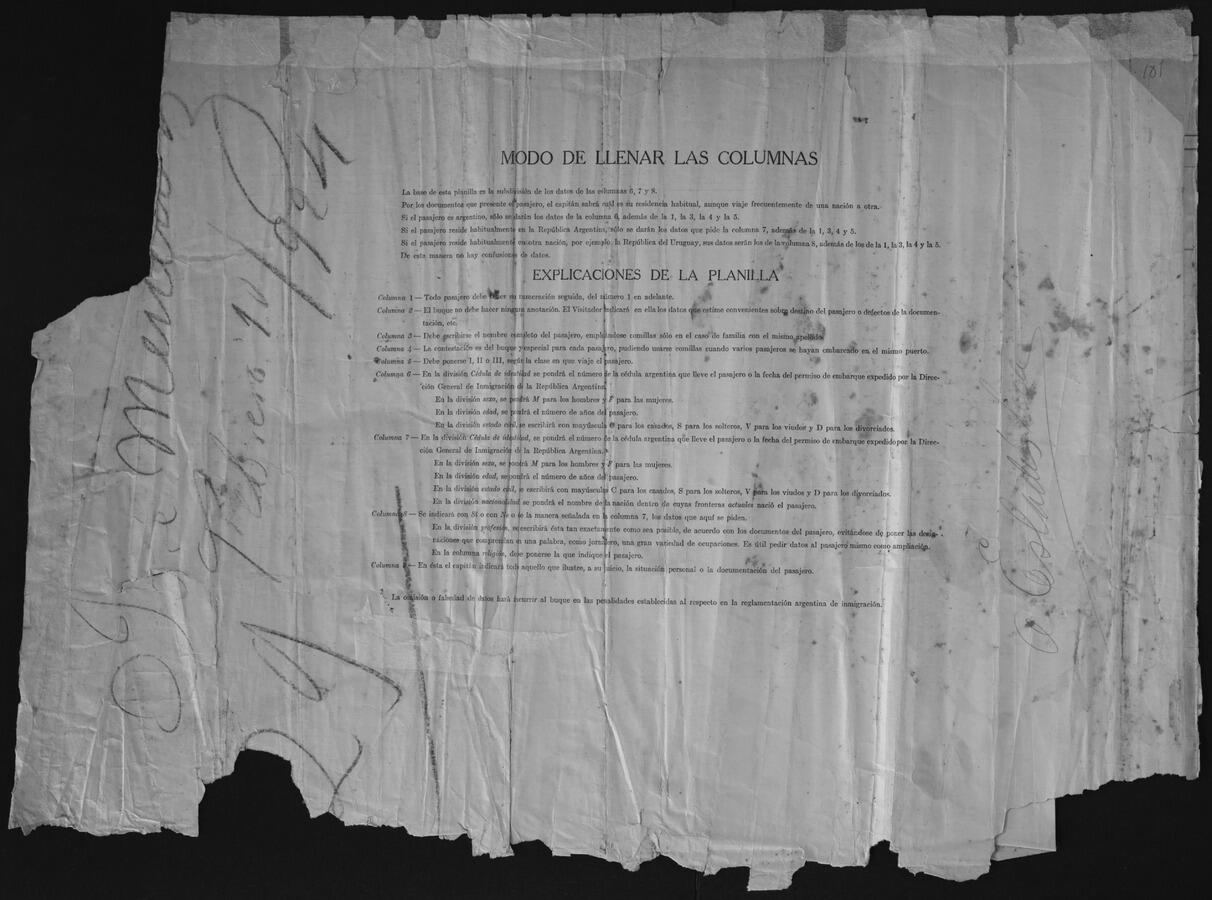 181
MODO DE LLENAR LAS COLUMNAS
La base de esta planilla es la subdivisión de los datos de las columnas 6, 7 y 8.
Por los documentos que presente el pasajero, el capitán sabrá cuál es su residencia habitual, aunque viaje frecuentemente de una nación a otra.
Si el pasajero es argentino, sólo se darán los datos de la columna 6, además de la 1, la 3, la 4 y la 5.
Si el pasajero reside habitualmente en la República Argentina, sólo se darán los datos que pide la columna 7, además de la 1, 3, 4 y 5.
Si el pasajero reside habitualmente en otra nación, por ejemplo, la República del Uruguay, sus datos serán los de la columna 8, además de los de la 1, la 3, la 4 y la 5.
De esta manera no hay confusiones de datos.
EXPLICACIONES DE LA PLANILLA
Columna 1 — Todo pasajero debe tener su numeración seguido, del número 1 en adelante.
Columna 2 — El buque no debe hacer ninguna anotación. El Visitador indicará en ella los datos que estime convenientes sobre destino del pasajero o defectos de la documen-
tación, etc.
Columna 3 — Debe escribirse el nombre completo del pasajero, empleándose comillas sólo en el caso de familia con el mismo apellido.
Columna 4 — La contestación es del buque y especial para cada pasajero, pudiendo usarse comillas cuando varios pasajeros se hayan embarcado en el mismo puerto.
Columna 5 — Debe ponerse I, II o III, según la clase en que viaje el pasajero.
Columna 6 — En la división Cédula de identidad se pondrá el número de la cédula argentina que lleve el pasajero o la fecha del permiso de embarque expedido por la Direc-
ción General de Inmigración de la República Argentina.
En la división sexo, se pondrá M para los hombres y F para las mujeres.
En la división edad, se pondrá el número de años del pasajero.
En la división estado civil, se escribirá con mayúscula C para los casados, S para los solteros, V para los viudos y D para los divorciados.
Columna 7 — En la división Cédula de identidad, se pondrá el número de la cédula argentina que lleve el pasajero o la fecha del permiso de embarque expedido por la Direc-
ción General de Inmigración de la República Argentina.
En la división sexo, se pondrá M para los hombres y F para las mujeres.
En la división edad, se pondrá el número de años del pasajero.
En la división estado civil, se escribirá con mayúsculas C para los casados, S para los solteros, V para los viudos y D para los divorciados.
En la división nacionalidad se pondrá el nombre de la nación dentro de cuyas fronteras actuales nació el pasajero.
Columna 8 — Se indicará con Sí o con No o de la manera señalada en la columna 7, los datos que aquí se piden.
En la división profesión, se escribirá ésta tan exactamente como sea posible, de acuerdo con los documentos del pasajero, evitándose de poner las desig-
naciones que comprendan en una palabra, como jornalero, una gran variedad de ocupaciones. Es útil pedir datos al pasajero mismo como ampliación.
En la columna religión, debe ponerse la que indique el pasajero.
Columna 9 — En ésta el capitán indicará todo aquello que ilustre, a su juicio, la situación personal o la documentación del pasajero.
La omisión o falsedad de datos hará incurrir al buque en las penalidades establecidas al respecto en la reglamentación argentina de inmigración.
Febrero 10/924